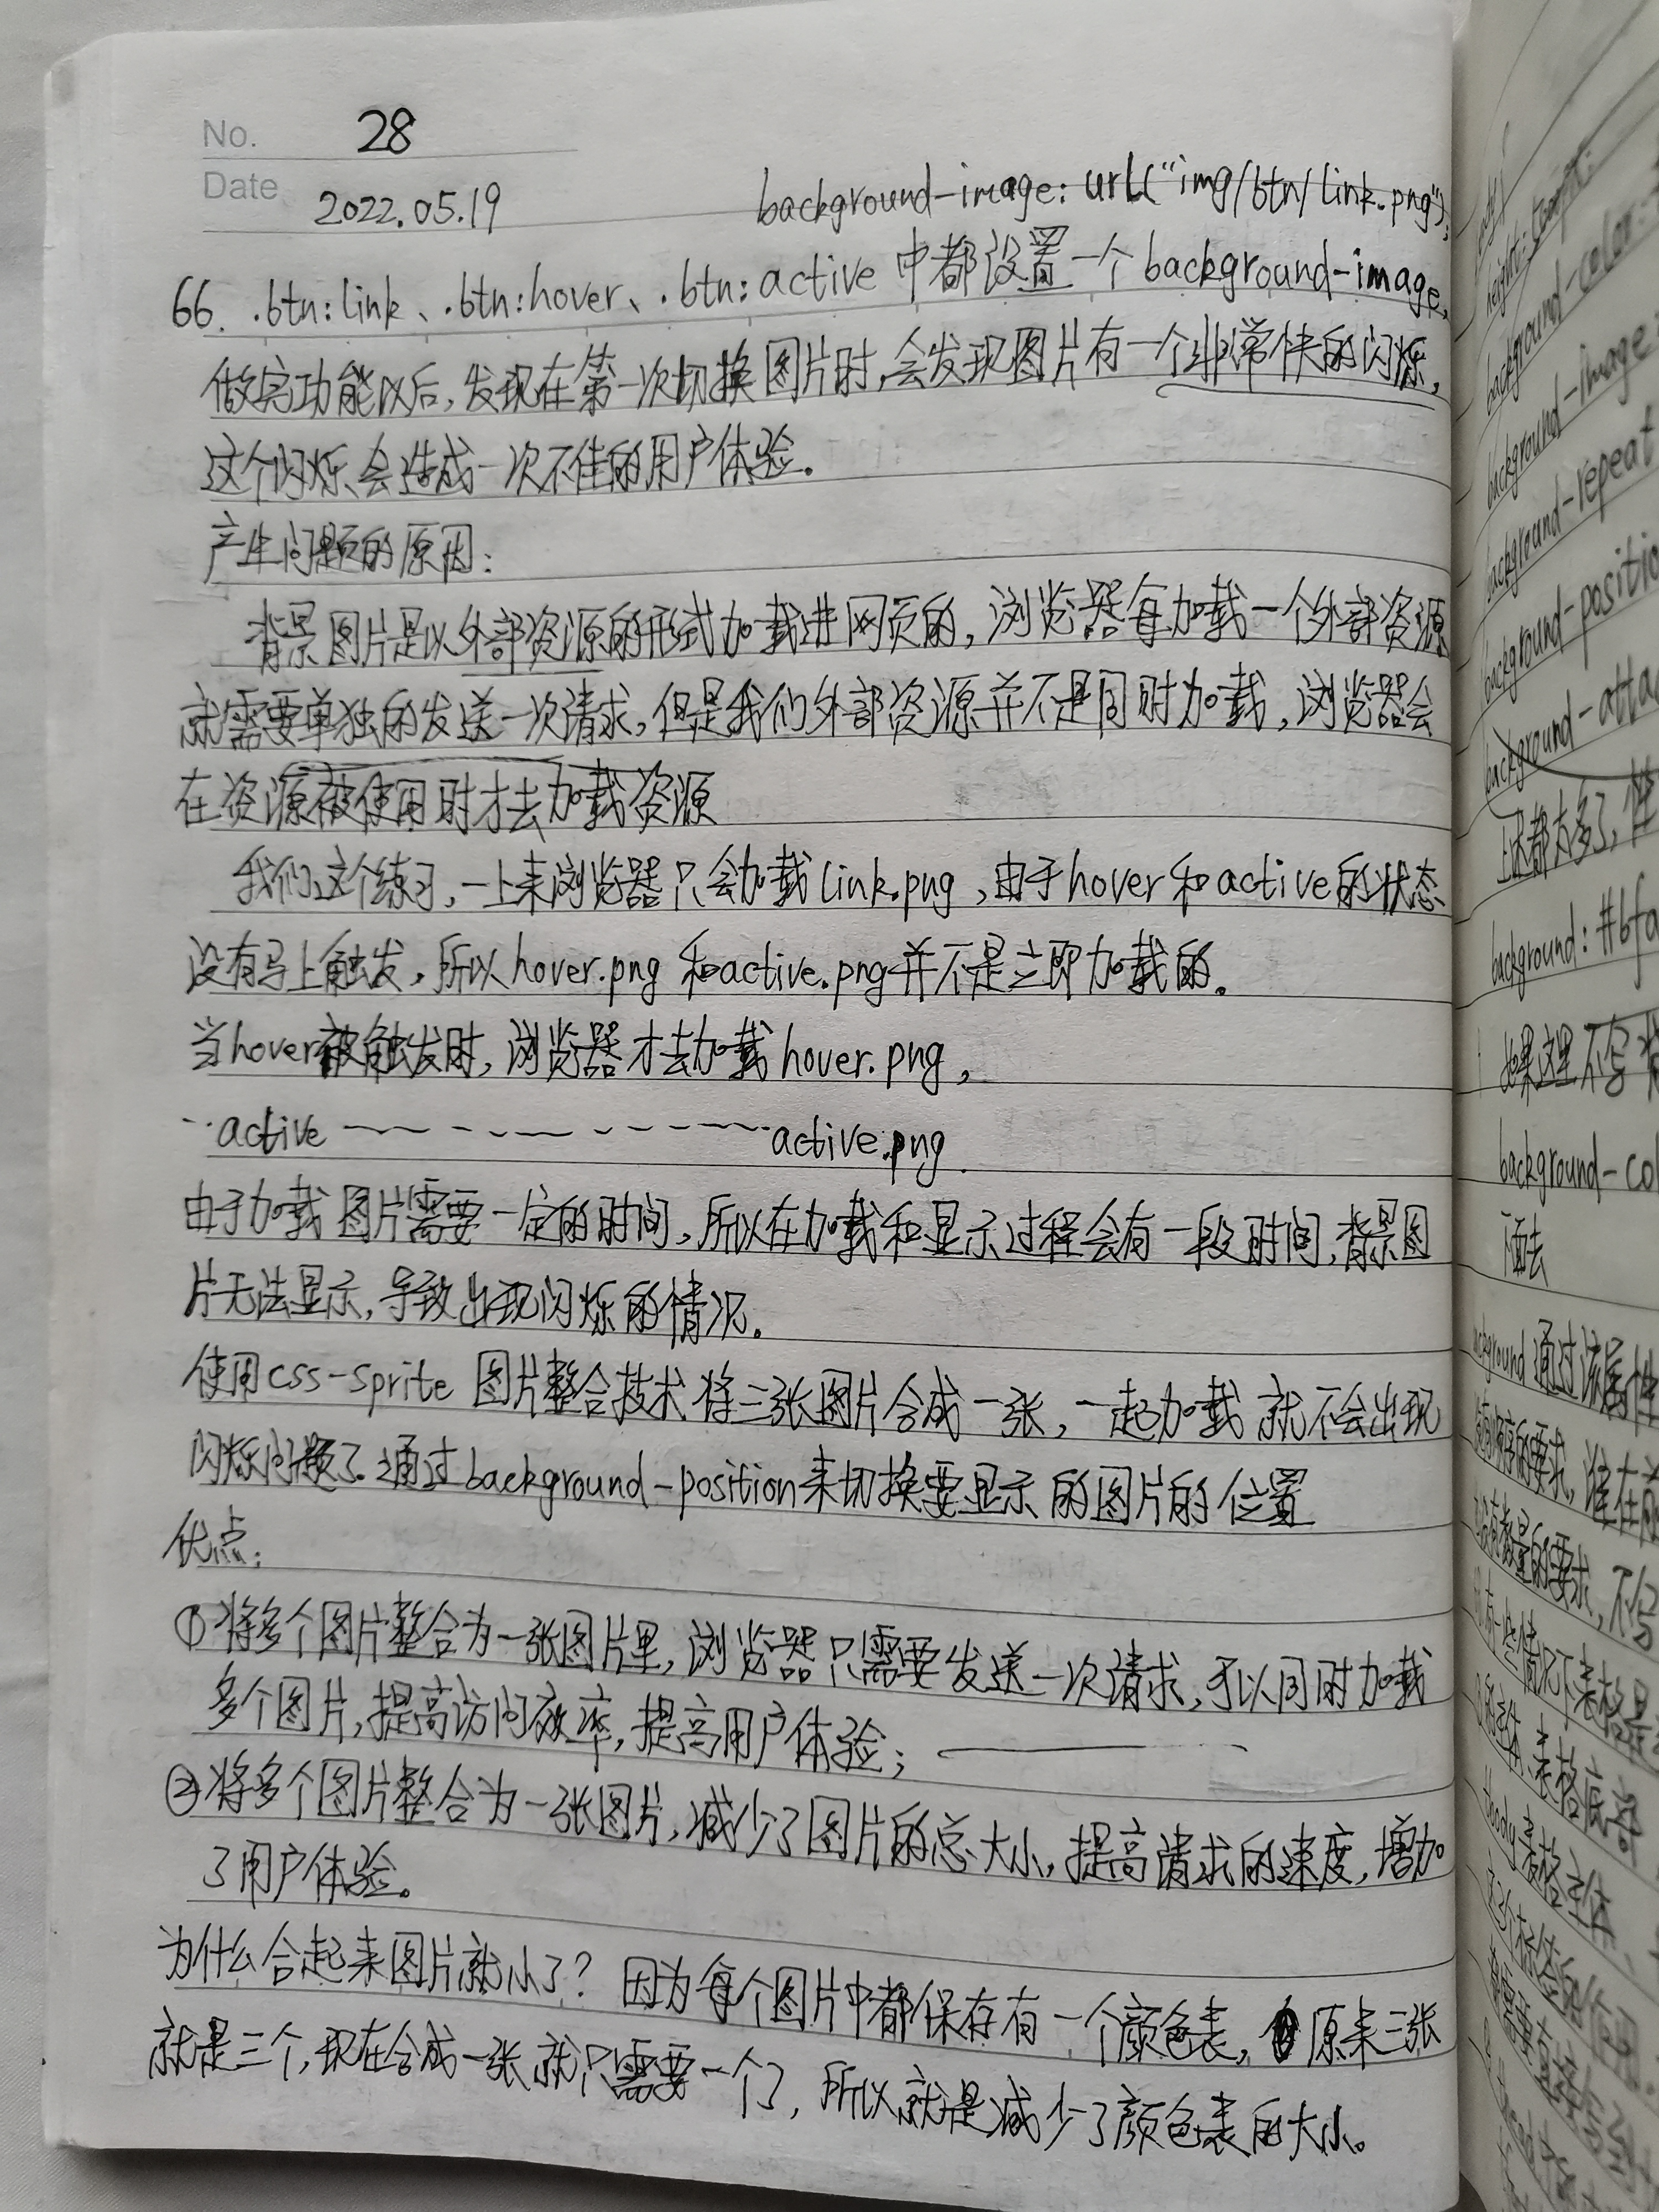 No. 28
Date 2022.05.19
background-image: url("img/btn/link.png");
66. .btn:link、.btn:hover、.btn:active 中都设置一个background-image,
做完功能以后,发现在第一次切换图片时,会发现图片有一个非常快的闪烁,
这个闪烁会造成一次不佳的用户体验。
产生问题的原因:
背景图片是以外部资源的形式加载进网页的,浏览器每加载一个外部资源
就需要单独的发送一次请求,但是我们外部资源并不是同时加载,浏览器会
在资源被使用时才去加载资源
我们这个练习,一上来浏览器只会加载link.png,由于hover和active的状态
没有马上触发,所以hover.png和active.png并不是立即加载的。
当hover被触发时,浏览器才去加载hover.png,
active active.png.
由于加载图片需要一定的时间,所以在加载和显示过程会有一段时间,背景图
片无法显示,导致出现闪烁的情况。
使用css-sprite 图片整合技术将三张图片合成一张,一起加载就不会出现
闪烁问题了.通过background-position来切换要显示的图片的位置
优点:
①将多个图片整合为一张图片里,浏览器只需要发送一次请求,可以同时加载
多个图片,提高访问效率,提高用户体验;
②将多个图片整合为一张图片,减少了图片的总大小,提高请求的速度,增加
了用户体验。
为什么合起来图片就小了?因为每个图片中都保存有一个颜色表,原来三张
就是三个,现在合成一张就只需要一个了,所以就是减少了颜色表的大小。
height:
background-color:
background-image:
background-repeat
background-position
background-atta
上述都太多了,
background: #bfa
如果这里不写
background-col
面去
background 通过该属性